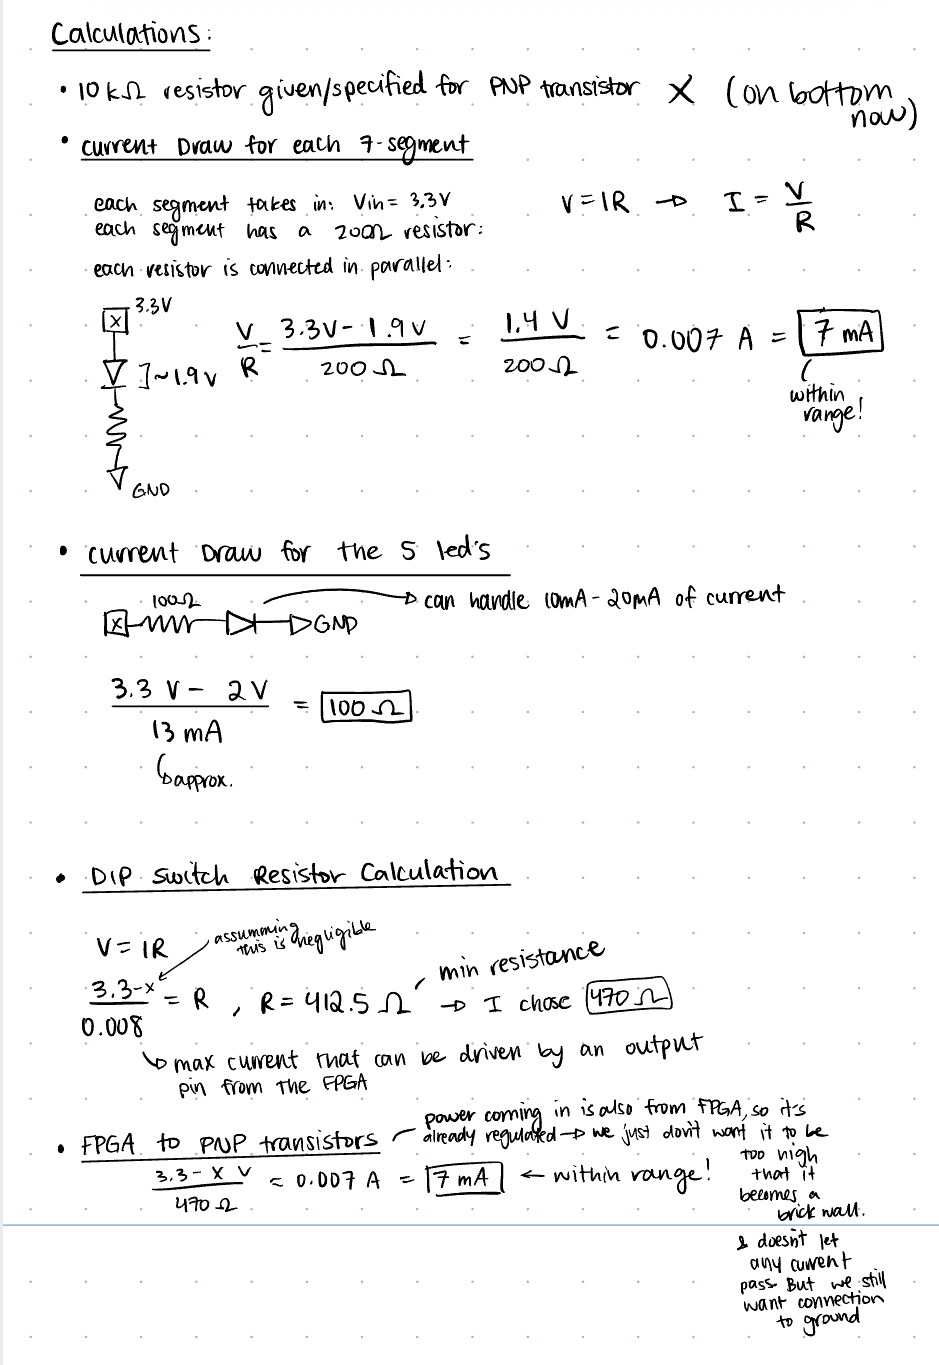 Calculations:
• 10 kΩ resistor given/specified for PNP transistor X (on bottom
now)
• current Draw for each 7-segment
each segment takes in: Vin = 3.3V
each segment has a 200Ω resistor:
V = IR → I = V/R
each resistor is connected in parallel:
3.3V
X
]~1.9V
GND
V/R = (3.3V - 1.9V)/200Ω = 1.4V/200Ω = 0.007 A = 7 mA
within
range!
• current Draw for the 5 led's
100Ω
X
GND
→ can handle 10mA - 20mA of current
(3.3 V - 2V)/13 mA = 100 Ω
↳ approx.
• DIP switch Resistor Calculation
V = IR
assumming
this is negligible
(3.3-x)/0.008 = R , R = 412.5 Ω → I chose 470 Ω
min resistance
↳ max current that can be driven by an output
pin from the FPGA
• FPGA to PNP transistors
(3.3 - X V)/470 Ω = 0.007 A = 7 mA ← within range!
power coming in is also from FPGA, so it's
already regulated → we just don't want it to be
too high
that it
becomes a
brick wall.
& doesn't let
any current
pass. But we still
want connection
to ground